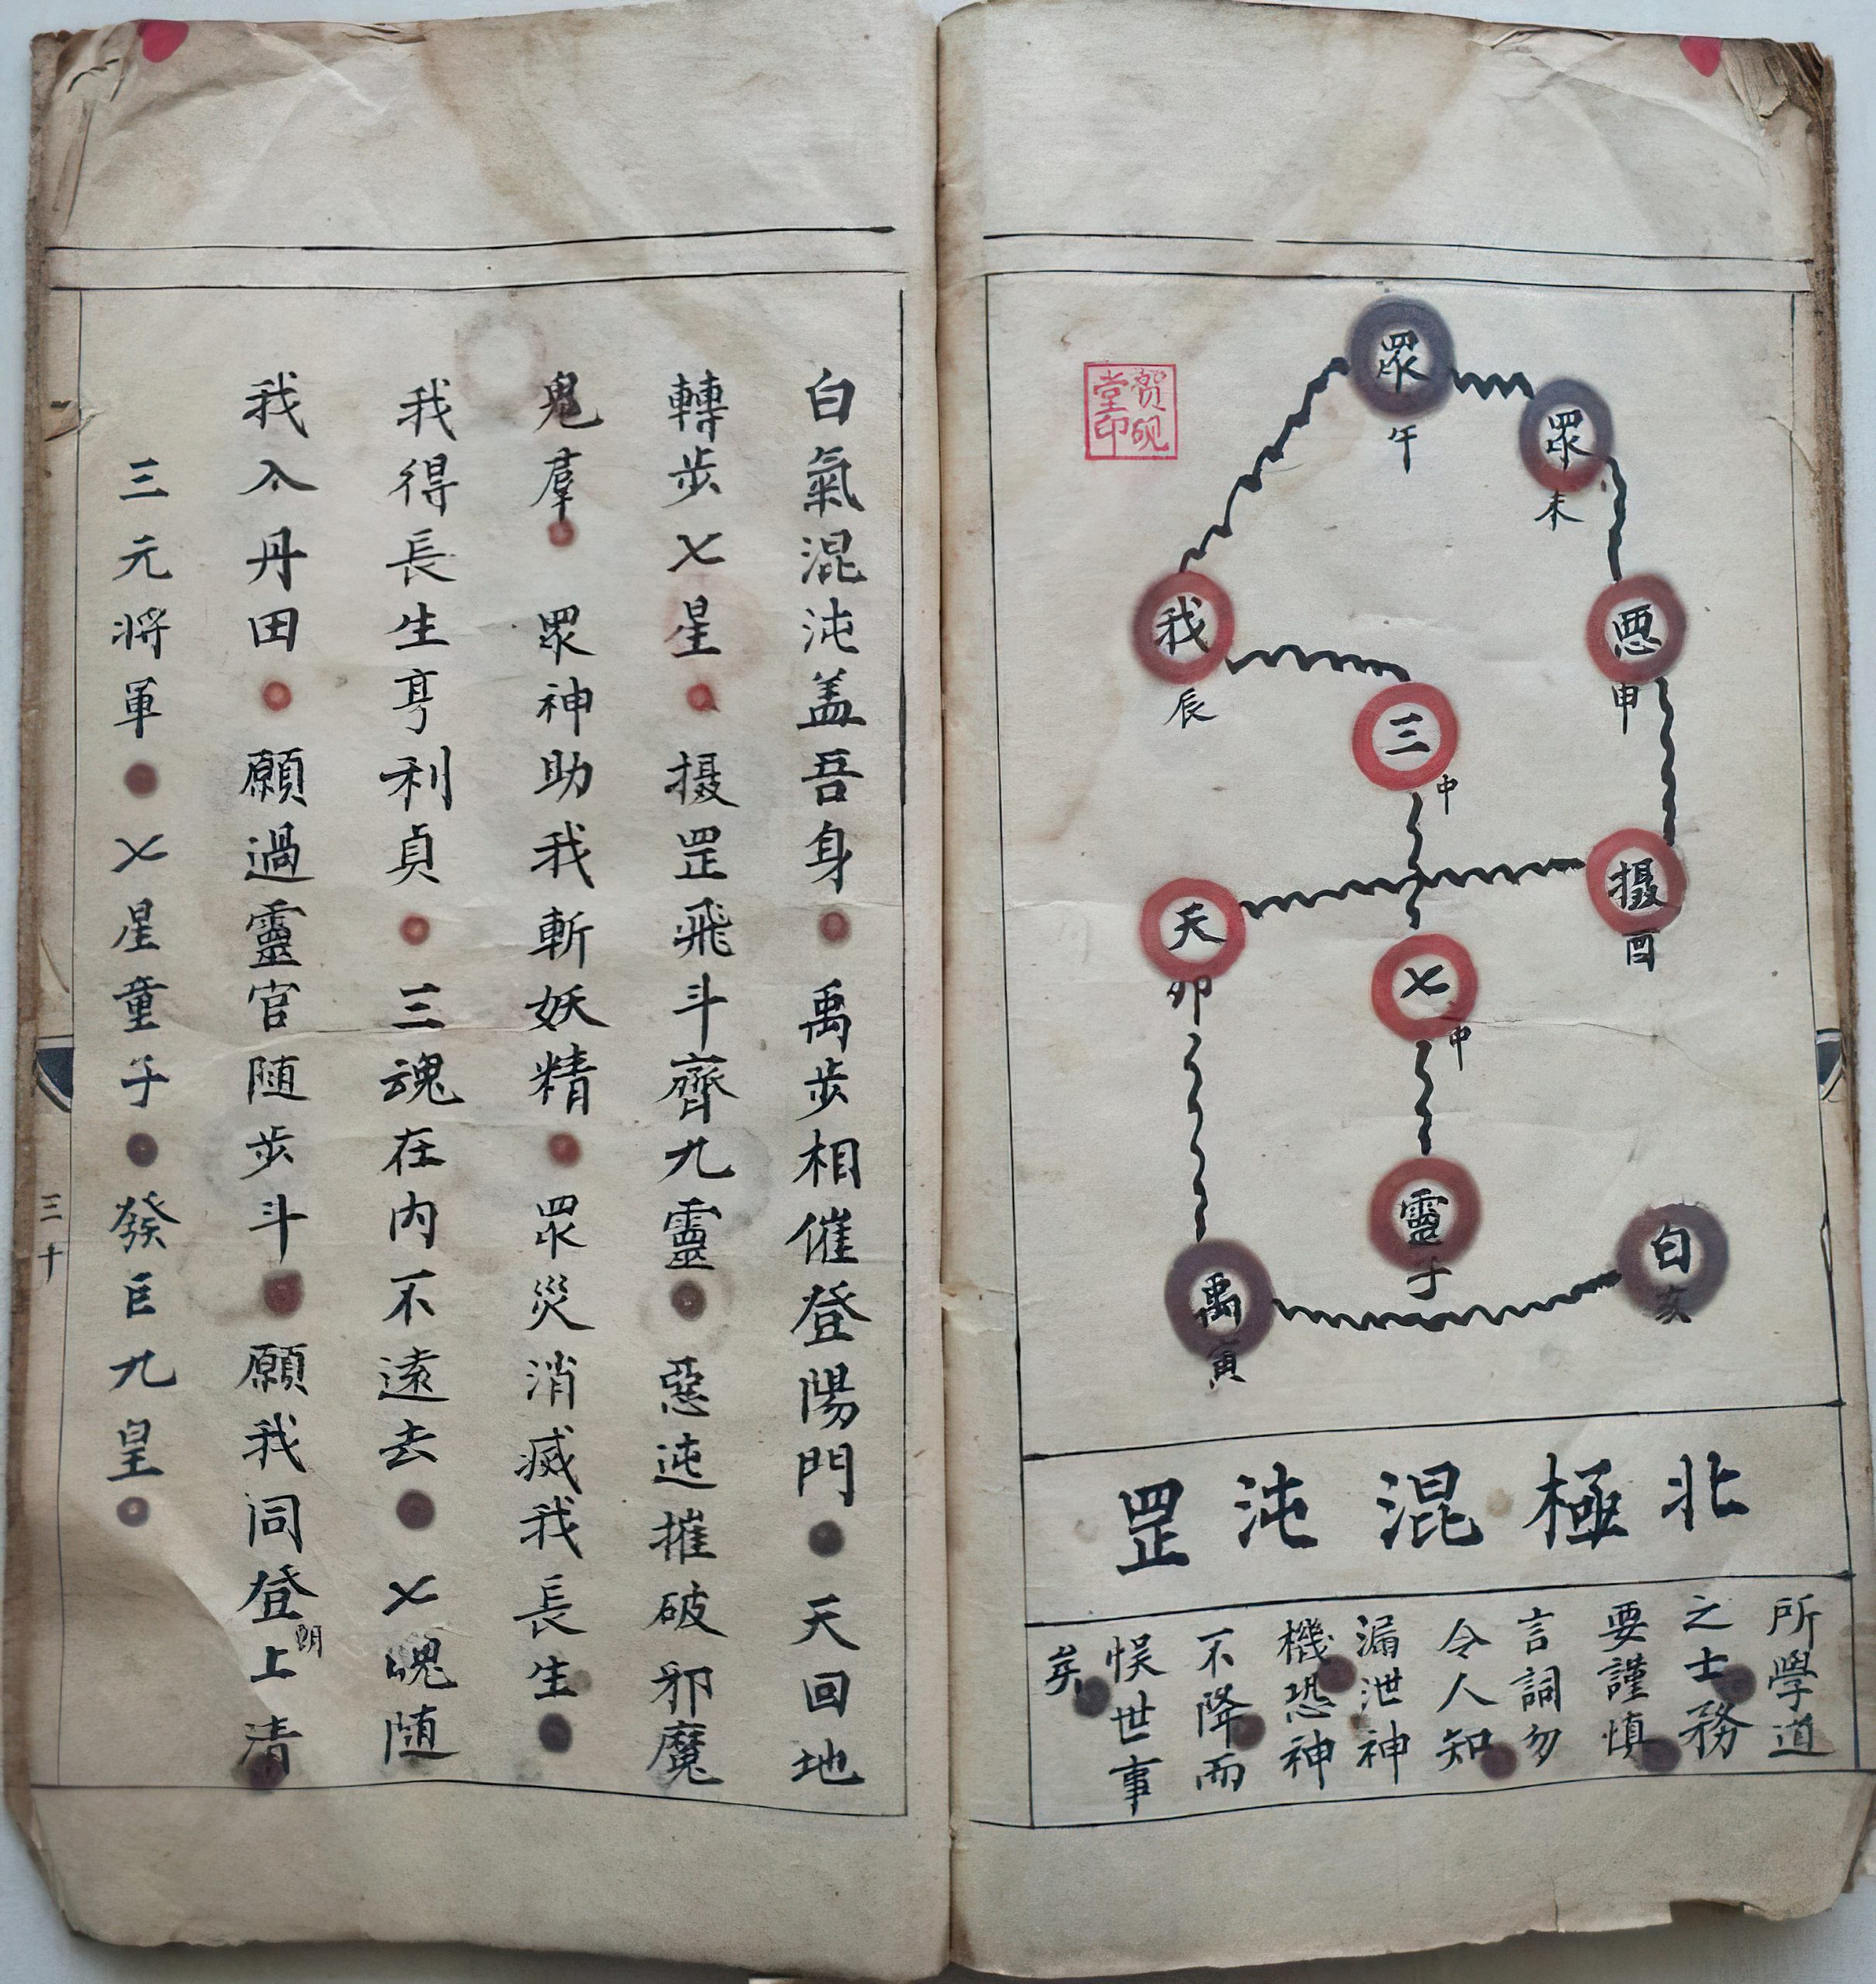 賀硯
堂印
眾
午
眾
未
惡
申
我
辰
三
中
摄
酉
天
卯
七
中
靈
子
禹
寅
白
亥
北極混沌罡
所學道
之士務
要謹慎
言詞勿
令人知
漏泄神
機恐神
不降而
悞世事
矣
白氣混沌盖吾身禹步相催登陽門天回地
轉步七星摄罡飛斗齊九靈惡迍摧破邪魔
鬼羣眾神助我斬妖精眾災消滅我長生
我得長生亨利貞三魂在内不遠去七魄随
我入丹田願過靈官随步斗願我同登上清
朗
三元将軍七星童子發巨九皇
三十